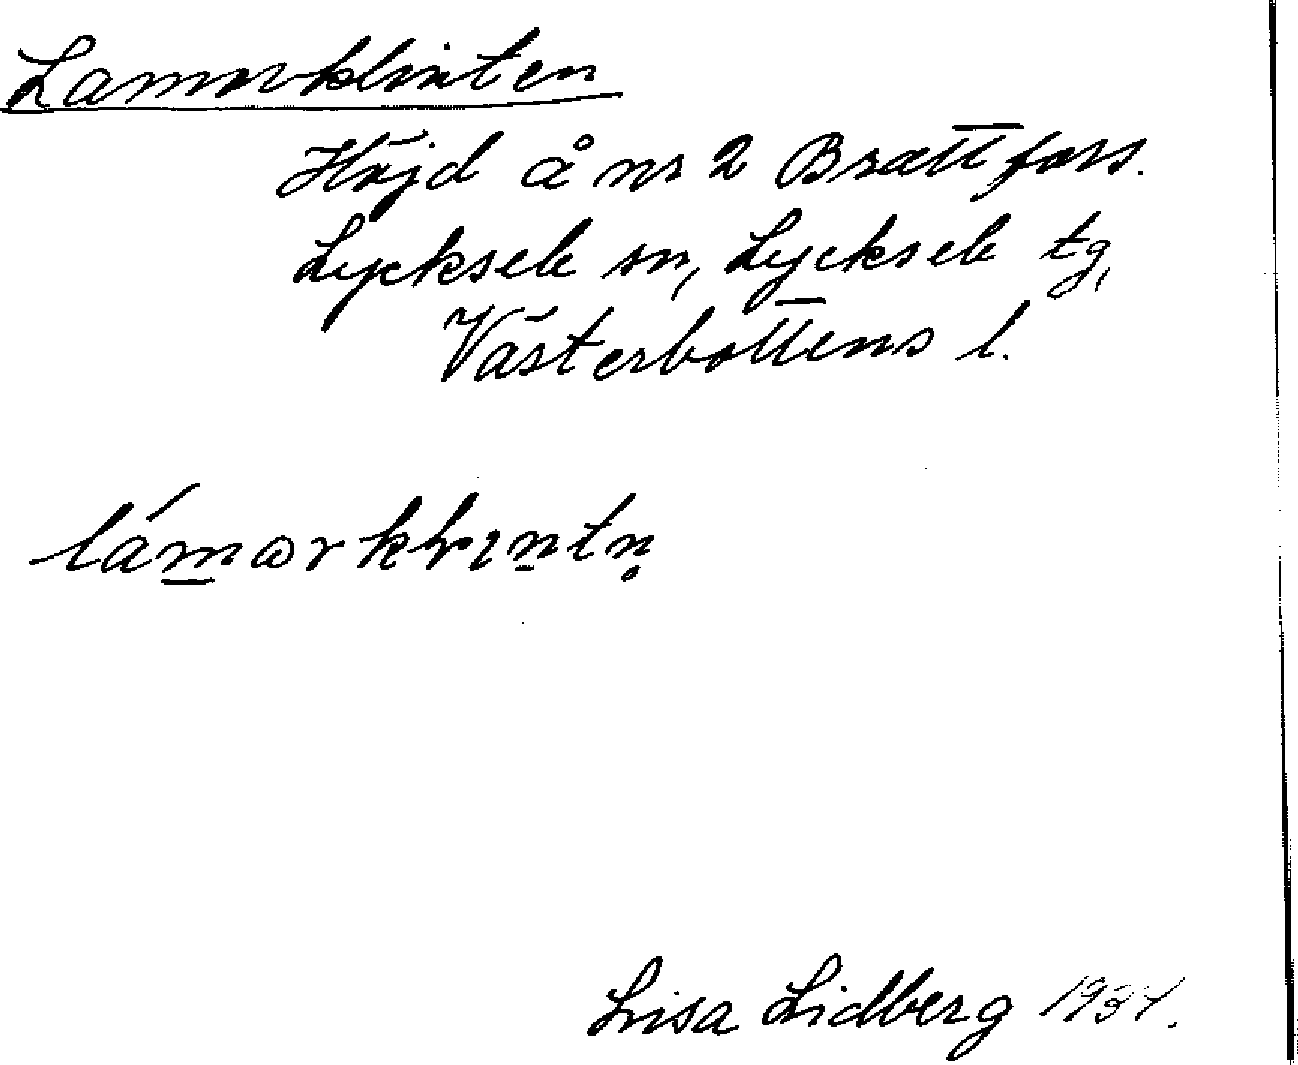 Lamorklinten
Höjd å nr 2 Brattfors.
Lycksele sn, Lycksele tg,
Västerbottens l.
Lisa Lidberg 1934.